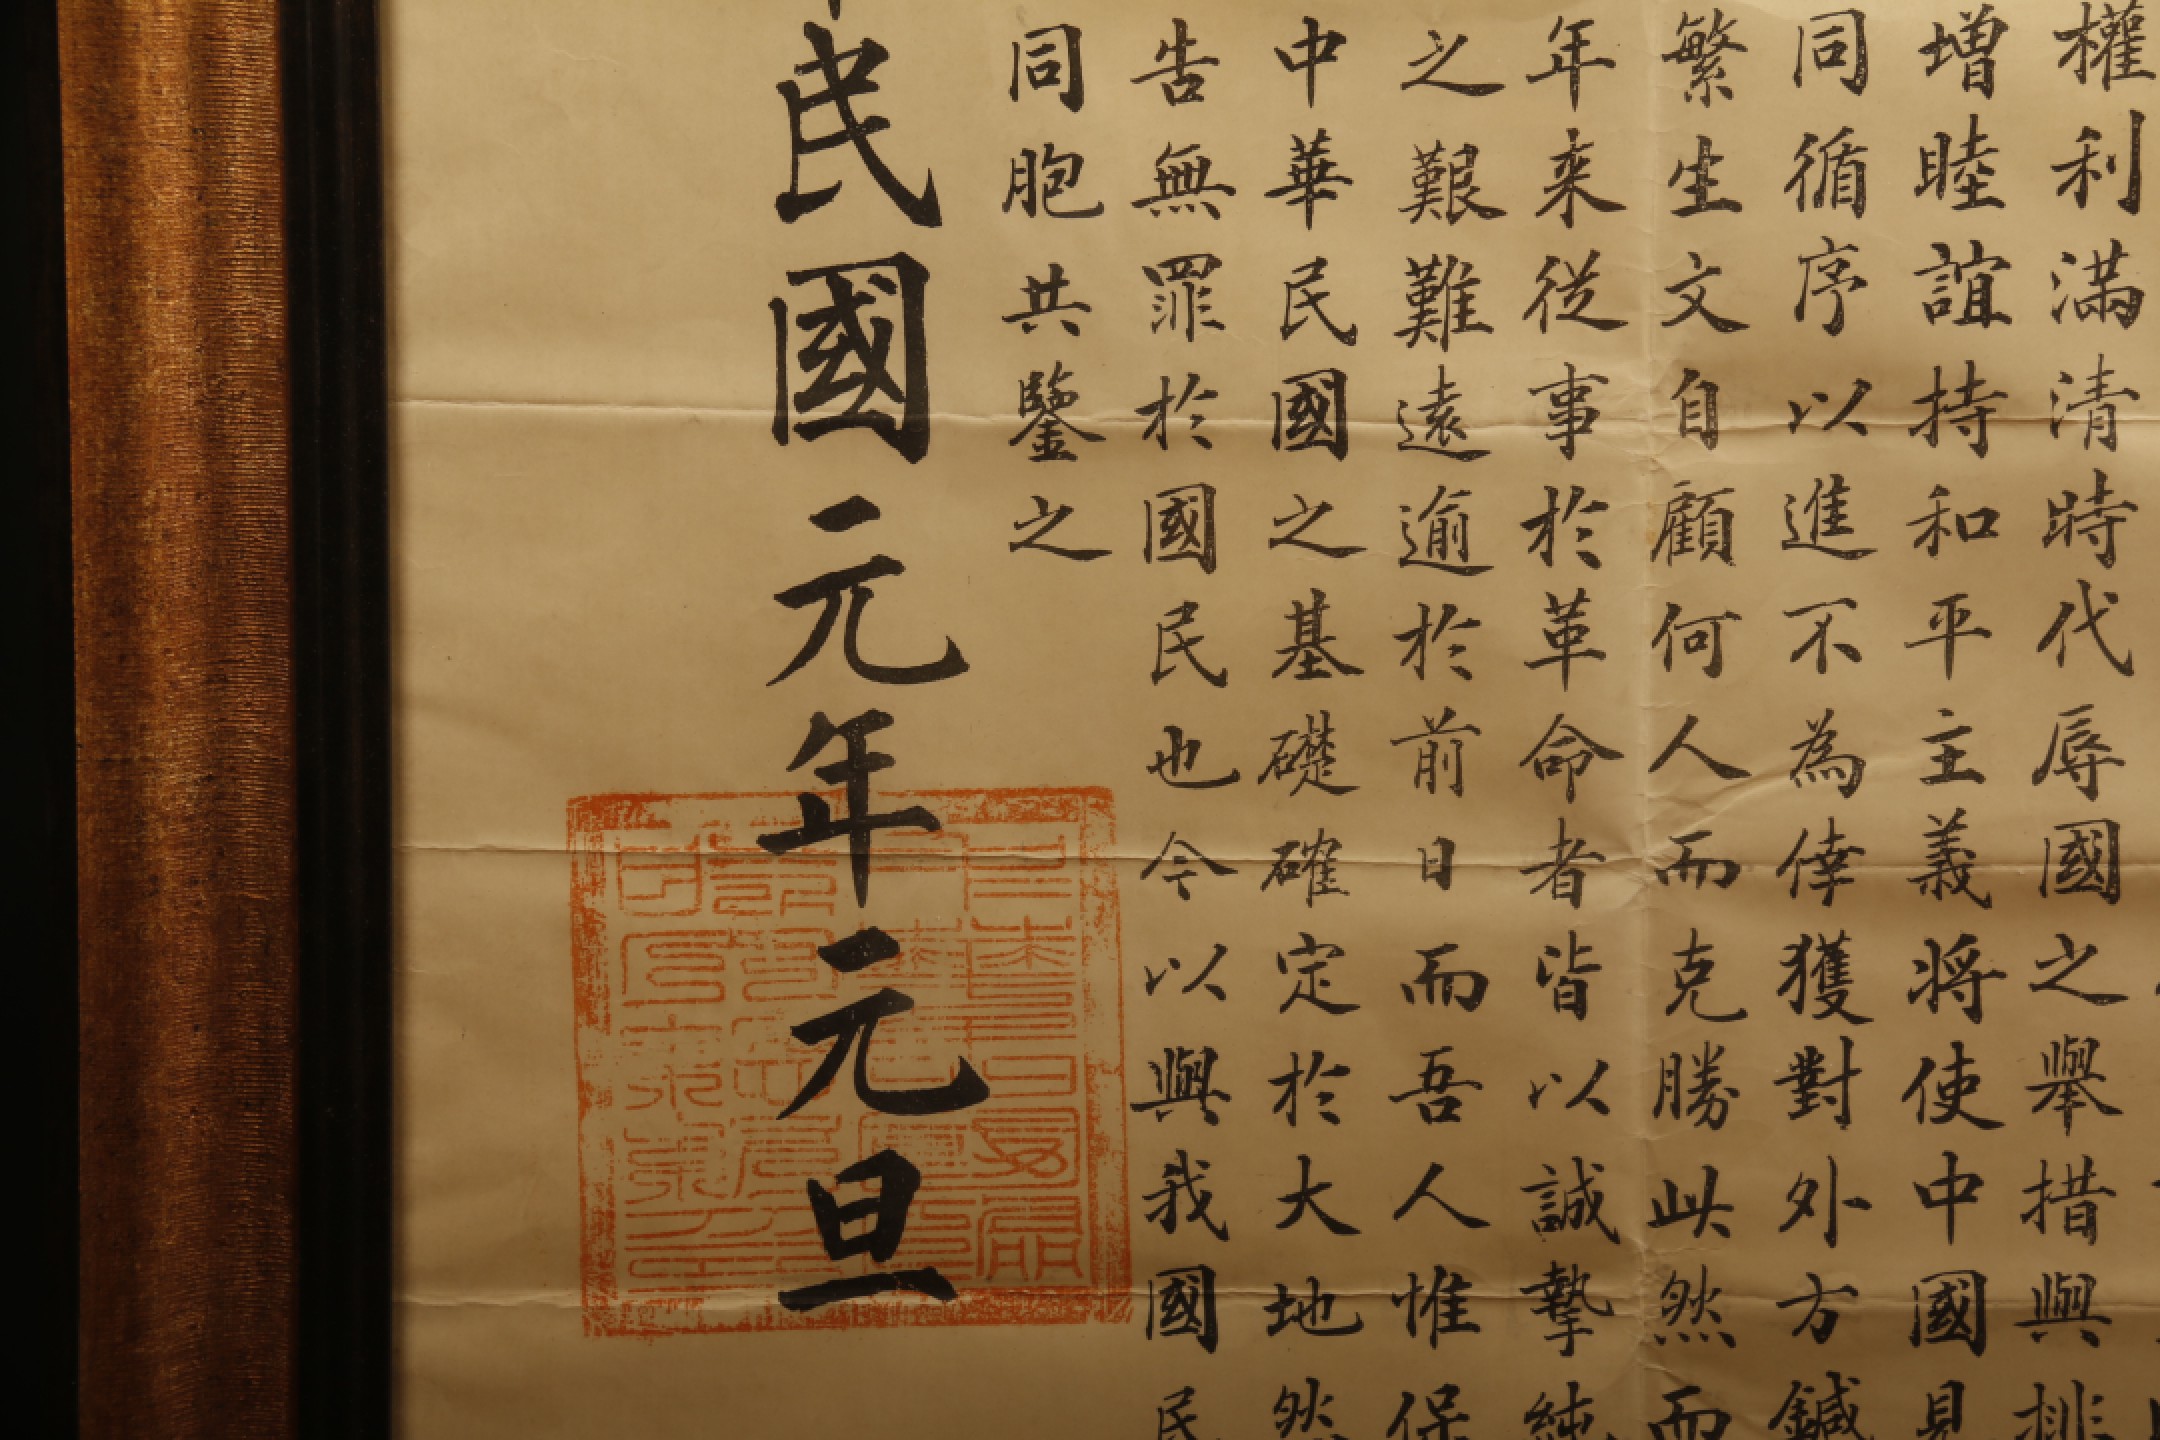 權利滿清時代辱國之舉措與排
增睦誼持和平主義將使中國見
同循序以進不為倖獲對外方鍼
繁生文自顧何人而克勝此然而
年來從事於革命者皆以誠摯純
之艱難遠逾於前日而吾人惟保
中華民國之基礎確定於大地然
告無罪於國民也今以與我國民
同胞共鑒之
民國元年元旦